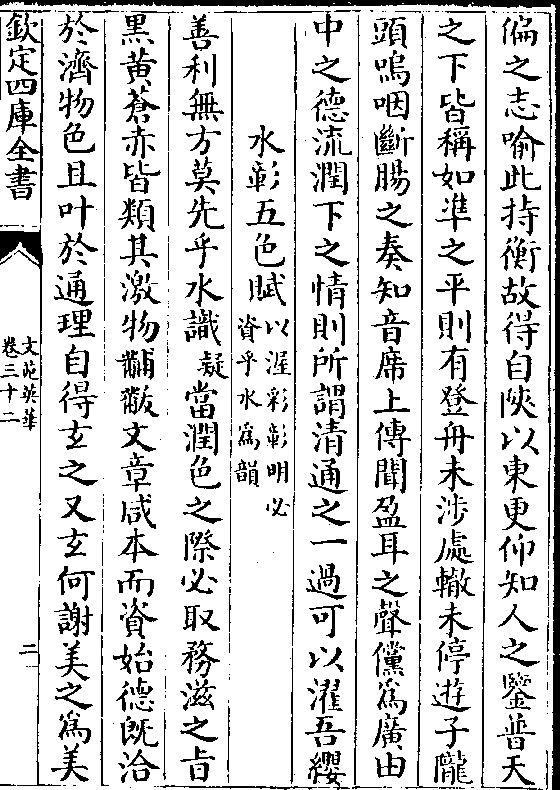 偏之志喻此持衡故得自陜以東更仰知人之鑒普天
之下皆稱如準之平則有登舟未涉處轍未停遊子隴
頭嗚咽斷腸之奏知音席上傳聞盈耳之聲儻為廣由
中之德流潤下之情則所謂清通之一過可以濯吾纓
水彰五色賦以渥彩彰明必
資乎水為韻
善利無方莫先乎水識疑當潤色之際必取務滋之旨
黑黄蒼赤皆類其激物黼黻文章咸本而資始德既洽
於濟物色且叶於通理自得玄之又玄何謝美之為美
欽定四庫全書
文苑英華
卷三十二
二